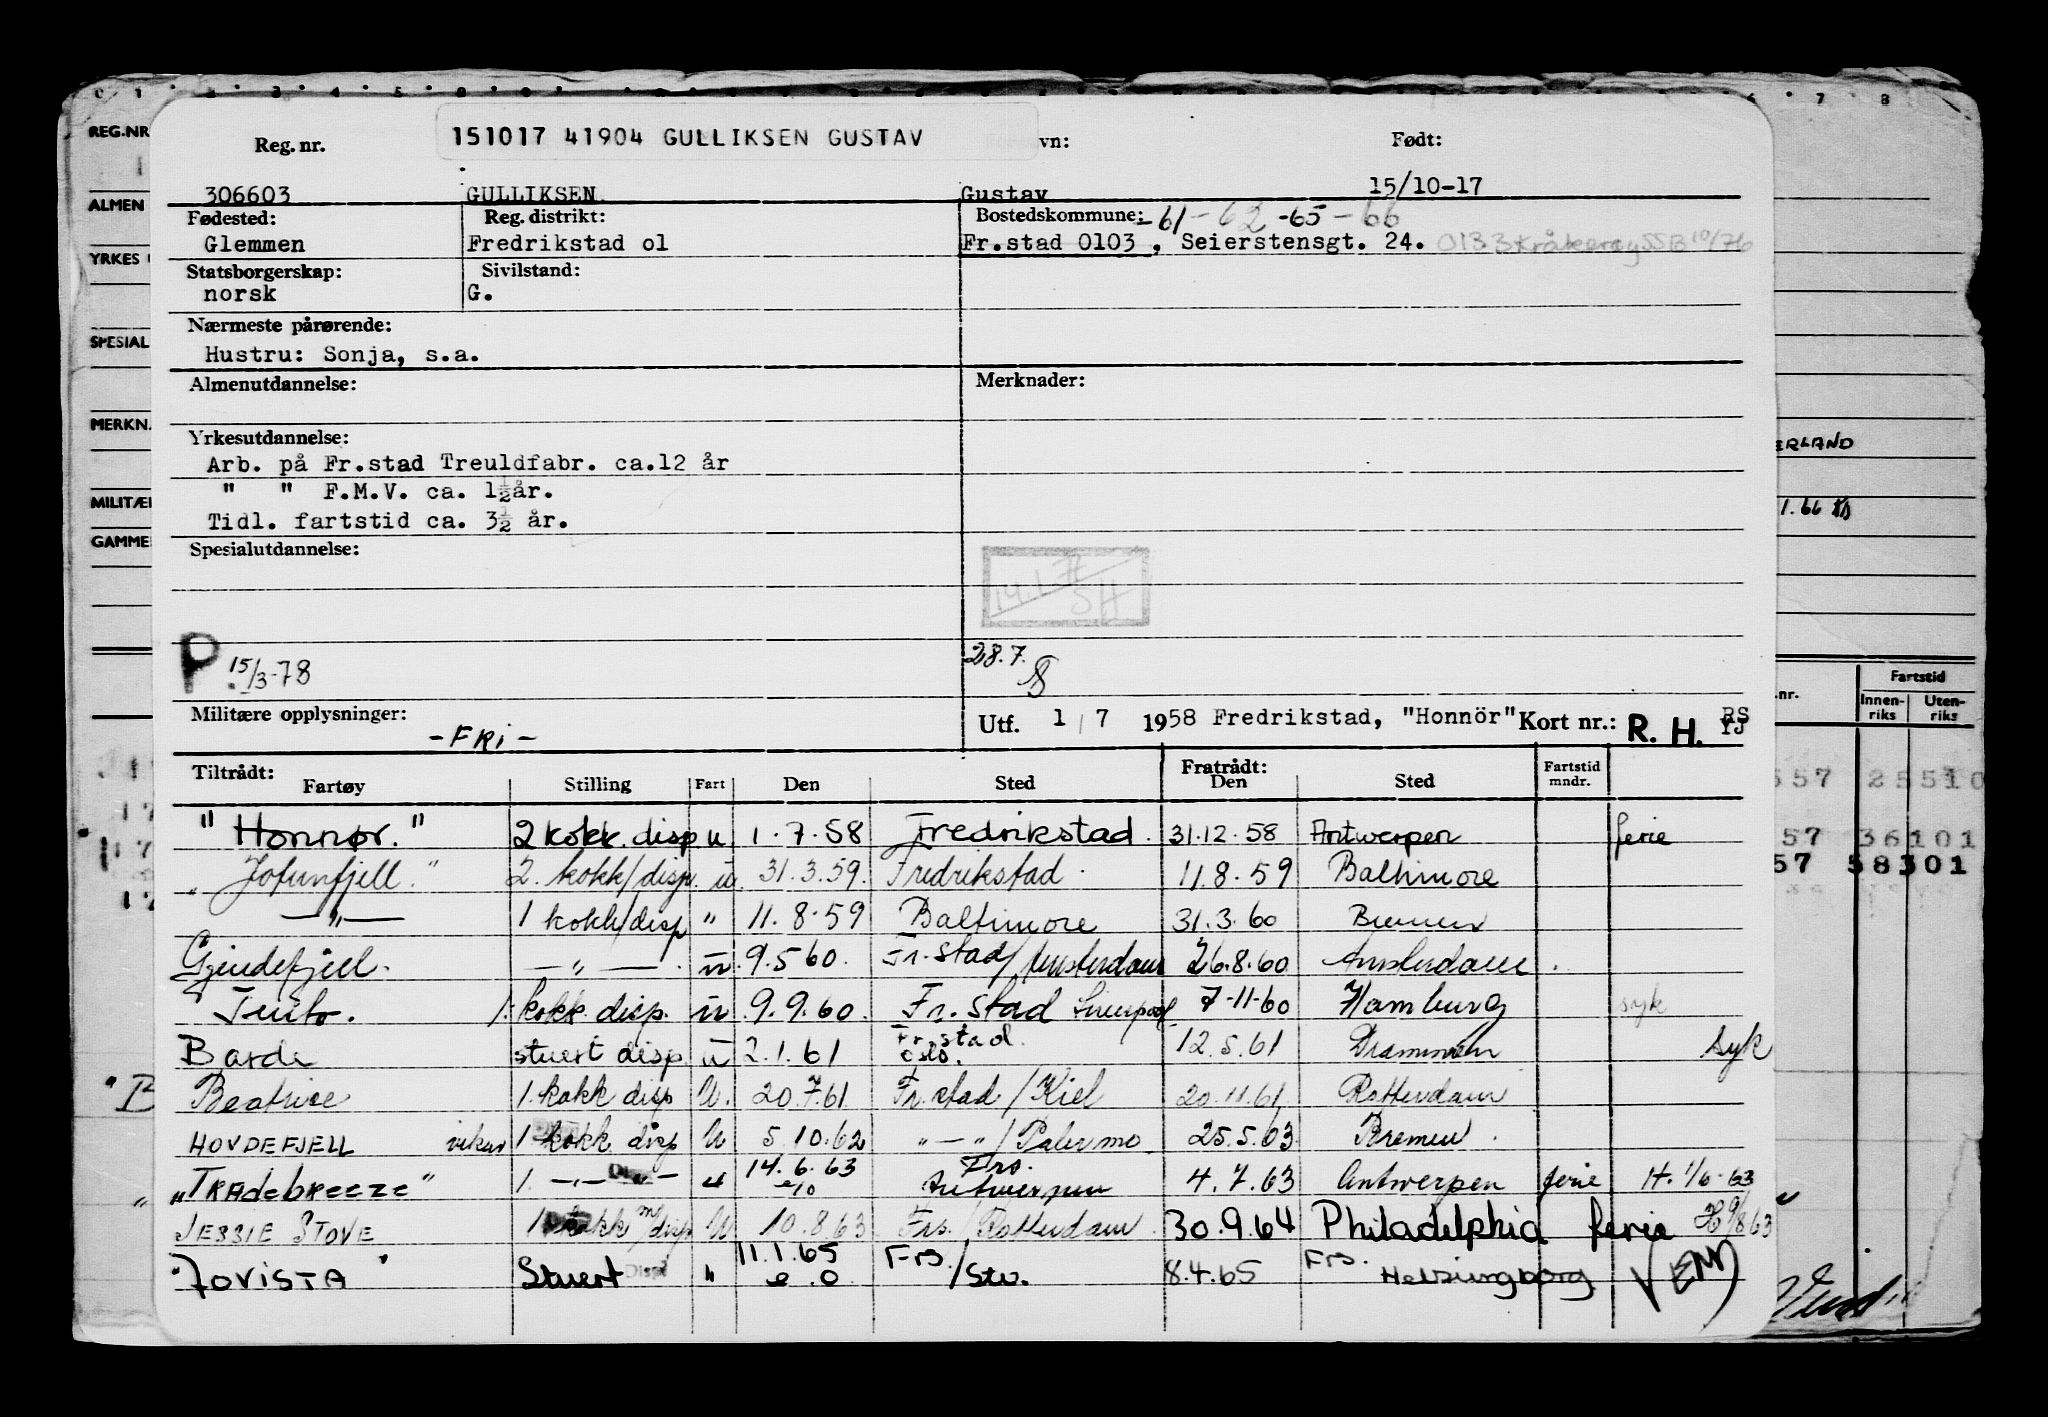 0 1 2 3 4 5 6 7 8
REG.NR
ALMEN
YRKES
SPESIAL
MERKN.
MILITÆR
GAMMEL
Reg. nr. 151017 41904 GULLIKSEN GUSTAV vn: Født:
306603 GULLIKSEN Gustav 15/10-17
Fødested: Reg. distrikt: Bostedskommune: -61-62-65-66
Glemmen Fredrikstad 01 Fr.stad 0103, Seierstensgt. 24. 0133 Kråkerøy SSB 10/76
Statsborgerskap: Sivilstand:
norsk G.
Nærmeste pårørende:
Hustru: Sonja, s.a.
Almenutdannelse: Merknader:
Yrkesutdannelse:
Arb. på Fr.stad Treuldfabr. ca.12 år
" " F.M.V. ca. 1½år.
Tidl. fartstid ca. 3½ år.
Spesialutdannelse:
SH
P 15/3-78 28.7.
Militære opplysninger: Utf. 1/7 1958 Fredrikstad, "Honnör" Kort nr.: R. H. RS YJ
- FRi -
Tiltrådt: Fratrådt: Fartstid
Fartøy Stilling Fart Den Sted Den Sted mndr.
"Honnør." 2 kokk. disp u. 1.7.58 Fredrikstad. 31.12.58 Antwerpen ferie
"Jotunfjell" 2. kokk/disp. u. 31.3.59. Fredrikstad. 11.8.59 Baltimore
—"— 1 kokk/disp " 11.8.59 Baltimore 31.3.60 Bremen
Gjendefjell. —"— u. 9.5 60. Fr.stad/Amsterdam 26.8.60 Amsterdam.
Tento. 1. kokk disp. u. 9.9.60. Fr.stad Liverpool 7-11-60 Hamburg syk
Barde stuert disp. u 2.1.61 Fr.stad. Oslo. 12.5.61 Drammen syk
Beatrice 1. kokk disp U. 20.7.61 Fr.stad/Kiel 20.11.61 Rotterdam
HOVDEFJELL vikar 1 kokk disp U 5.10.62 "—"/Palermo 25.5.63 Bremen.
"TRAdebreeze" 1. —"— u 14.6.63 Frs. Antwerpen 4.7.63 Antwerpen ferie H. 1/6-63
JESSIE STOVE 1 kokk m/disp U 10.8.63 Frs./Rotterdam. 30.9.64 Philadelphia ferie H 9/8 63
"JOVISTA" Stuert Disp " 11.1.65 e.o. Frs./Stv. 8.4.65 Frs. Helsingborg
ERLAND
1.66
nr. Fartstid
Innenriks Utenriks
557 25510
57 36101
57 58301